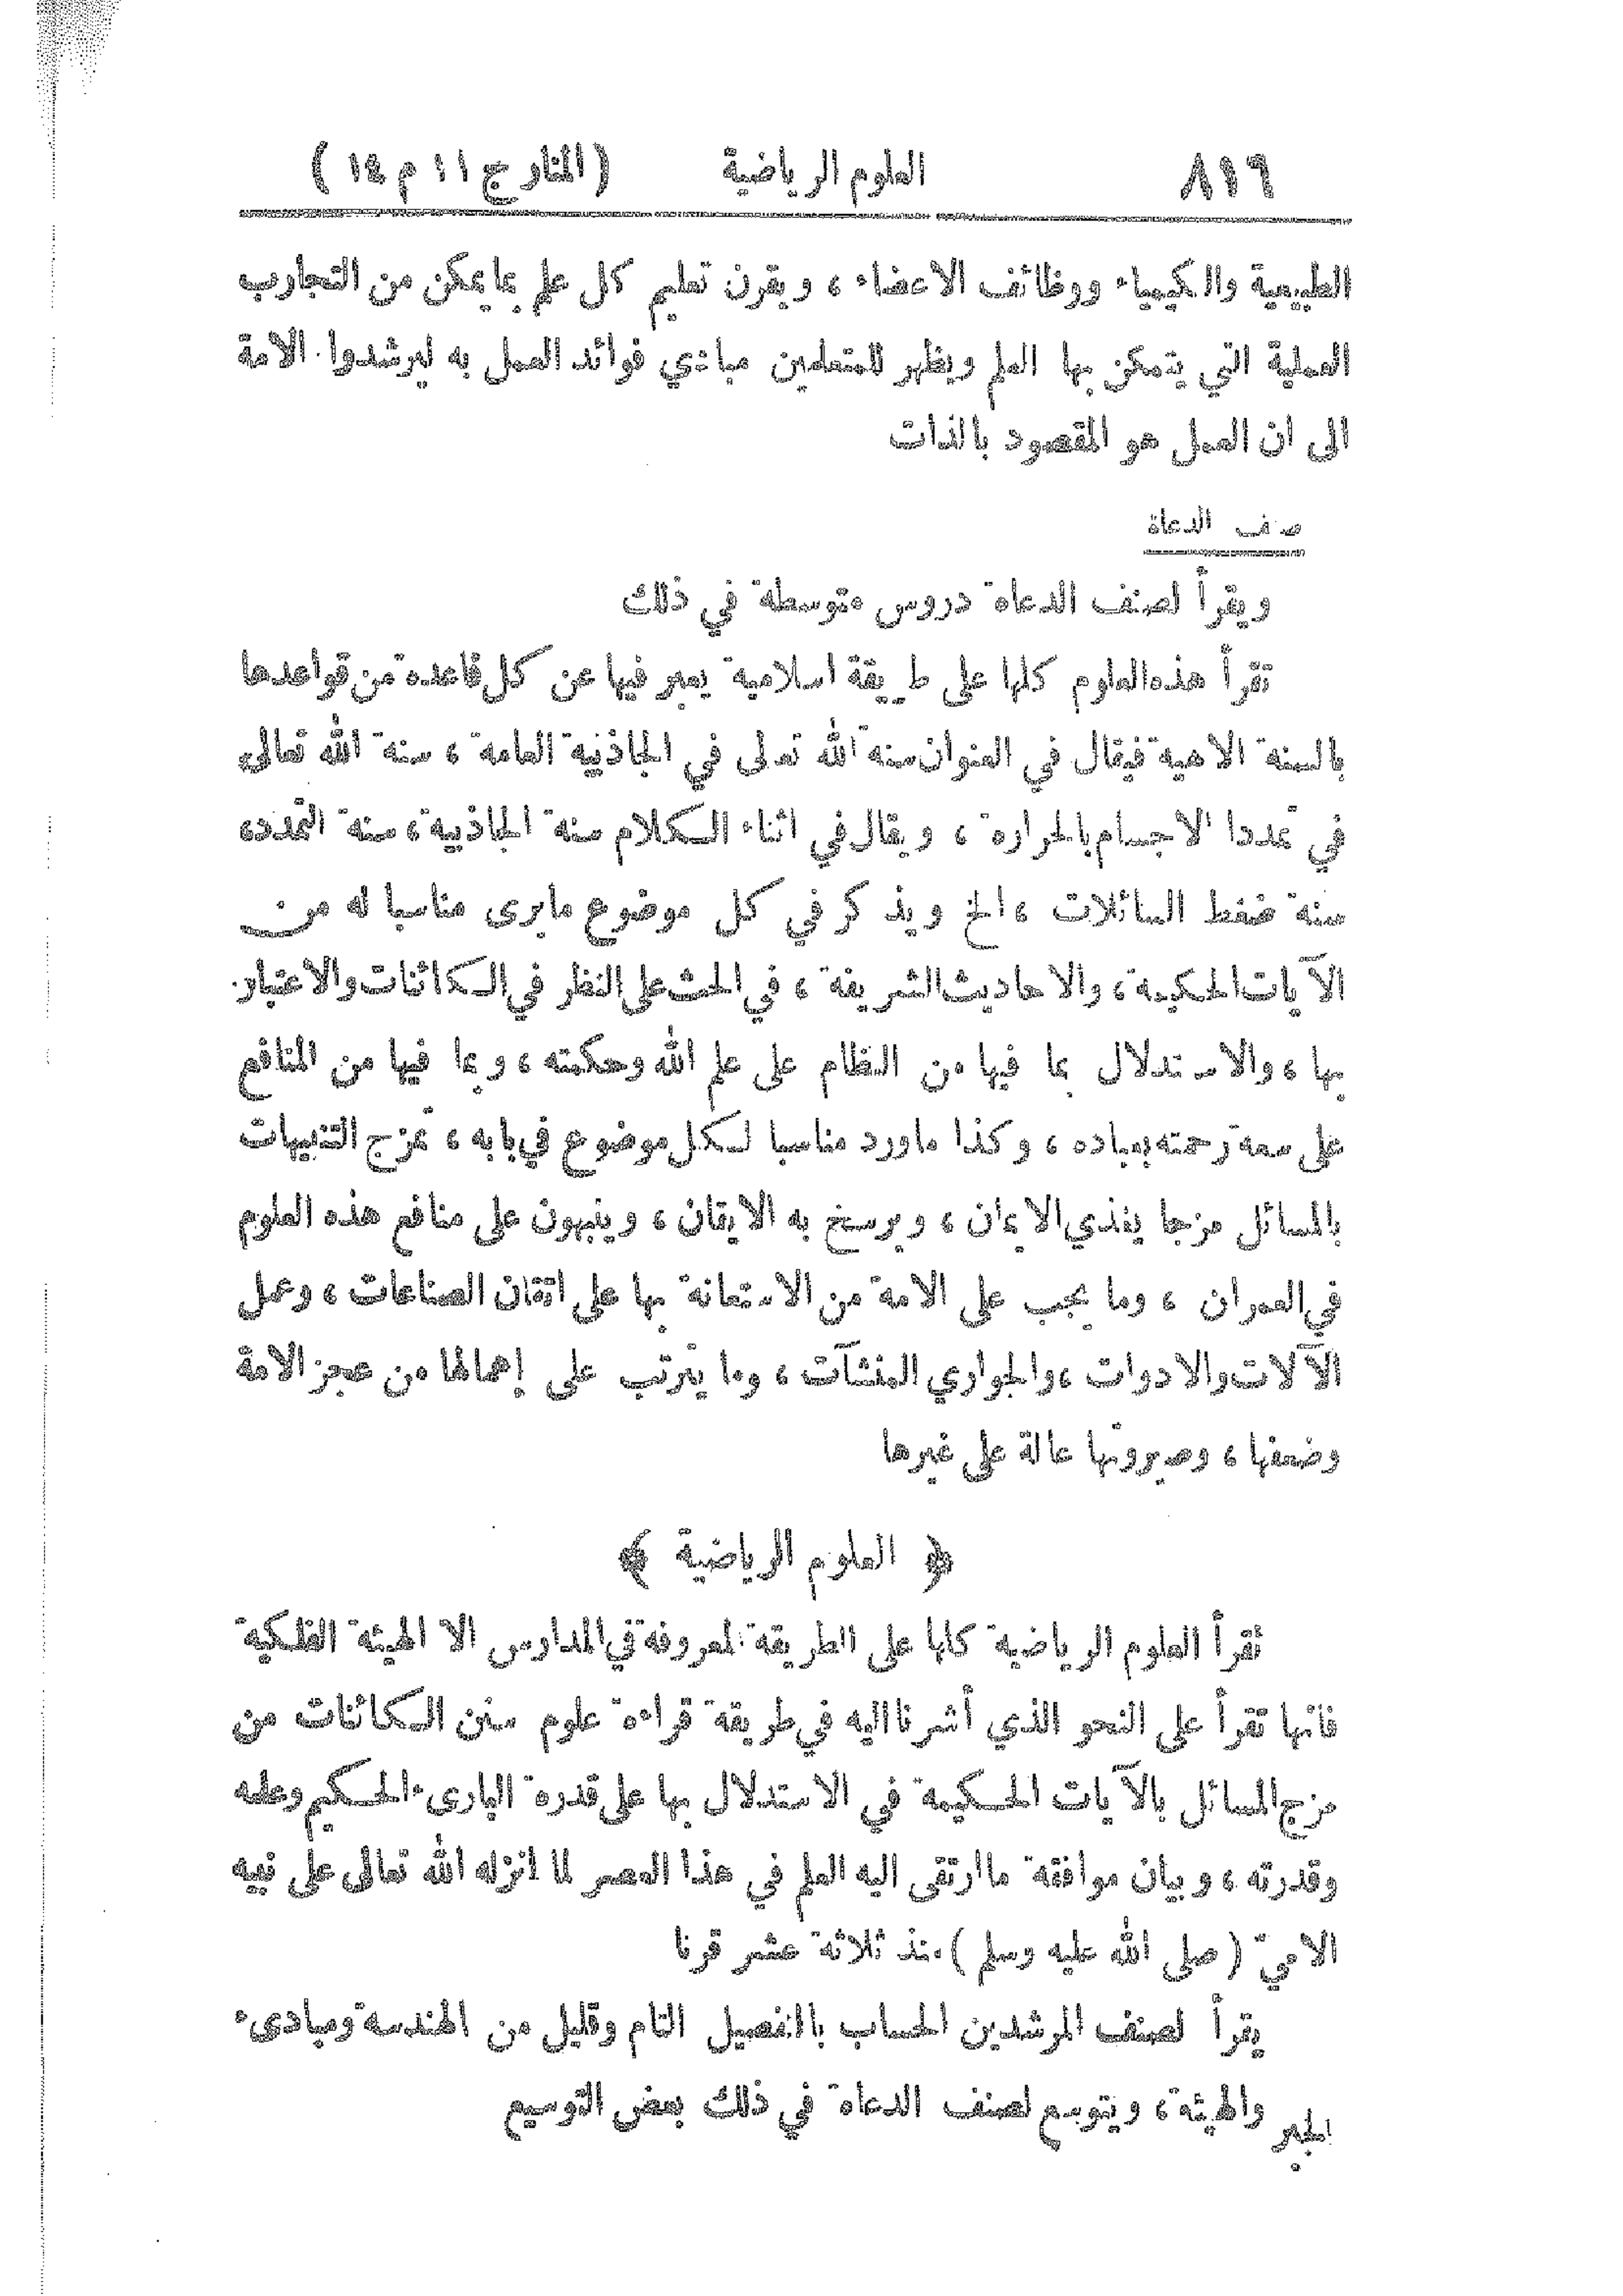 ٨١٦ العلوم الرياضية (المنار ج ١١ م ١٤)
الطبيعية والكيمياء ووظائف الاعضاء ، ويقرن تعليم كل علم بما يمكن من التجارب
العملية التي يتمكن بها العلم ويظهر للمتعلمين مبادي فوائد العمل به ليرشدوا الامة
الى ان العمل هو المقصود بالذات
صنف الدعاة
ويقرأ لصنف الدعاة دروس متوسطة في ذلك
تقرأ هذه العلوم كلها على طريقة اسلامية يعبر فيها عن كل قاعدة من قواعدها
بالسنة الاهية فيقال في العنوان سنة الله تعالى في الجاذبية العامة ، سنة الله تعالى
في تمدد الاجسام بالحرارة ، ويقال في اثناء الكلام سنة الجاذبية ، سنة التمدد ،
سنة ضغط السائلات ، الخ ويذكر في كل موضوع ما يرى مناسبا له من
الآيات الحكيمة ، والاحاديث الشريفة ، في الحث على النظر في الكائنات والاعتبار
بها ، والاستدلال بما فيها من النظام على علم الله وحكمته ، وبما فيها من المنافع
على سعة رحمته بعباده ، وكذا ما ورد مناسبا لكل موضوع في بابه ، تمزج التنبيهات
بالمسائل مزجا يغذي الايمان ، ويرسخ به الايقان ، وينبهون على منافع هذه العلوم
في العمران ، وما يجب على الامة من الاستعانة بها على اتقان الصناعات ، وعمل
الآلات والادوات ، والجواري المنشآت ، وما يترتب على إهمالها من عجز الامة
وضعفها ، وصيرورتها عالة على غيرها
﴿ العلوم الرياضية ﴾
تقرأ العلوم الرياضية كلها على الطريقة المعروفة في المدارس الا الهيئة الفلكية
فانها تقرأ على النحو الذي أشرنا اليه في طريقة قراءة علوم سنن الكائنات من
مزج المسائل بالآيات الحكيمة في الاستدلال بها على قدرة البارىء الحكيم وعلمه
وقدرته ، وبيان موافقة ما ارتقى اليه العلم في هذا العصر لما انزله الله تعالى على نبيه
الاميّ ( صلى الله عليه وسلم ) منذ ثلاثة عشر قرنا
يقرأ لصنف المرشدين الحساب بالتفصيل التام وقليل من الهندسة ومبادىء
الجبر والهيئة ، ويتوسع لصنف الدعاة في ذلك بعض التوسيع